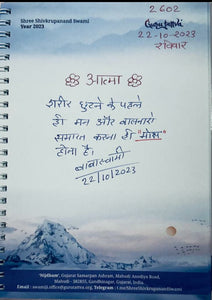 Shree Shivkrupanand Swami
Year 2023
2602
22-10-2023
रविवार
आत्मा
शरीर छुटने के पहले
ही मन और वासनाएँ
समाप्त करना ही "मोक्ष"
होना है।
बाबास्वामी
22/10/2023
"Nijdham", Gujarat Samarpan Ashram, Mahudi Amodiya Road,
Mahudi - 382855, Gandhinagar, Gujarat, India.
Email : swamiji.office@gurutattva.org, Telegram : t.me/ShreeShivkrupanandSwami